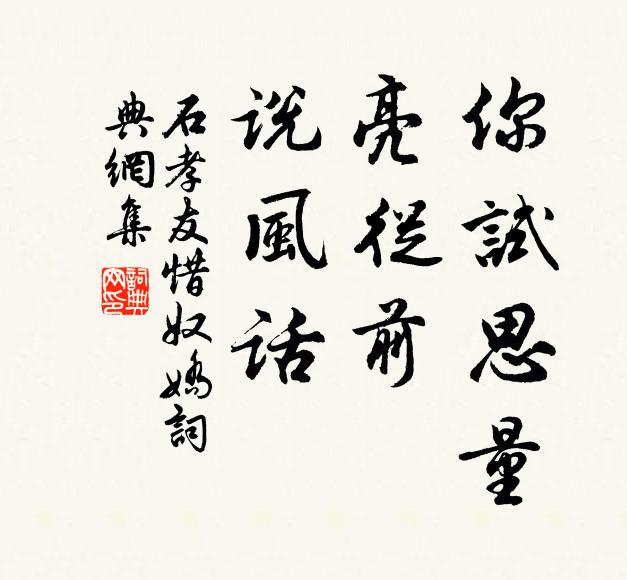 你試思量
亮從前
說風話
石孝友惜奴嬌詞
典網集
詞典
网印